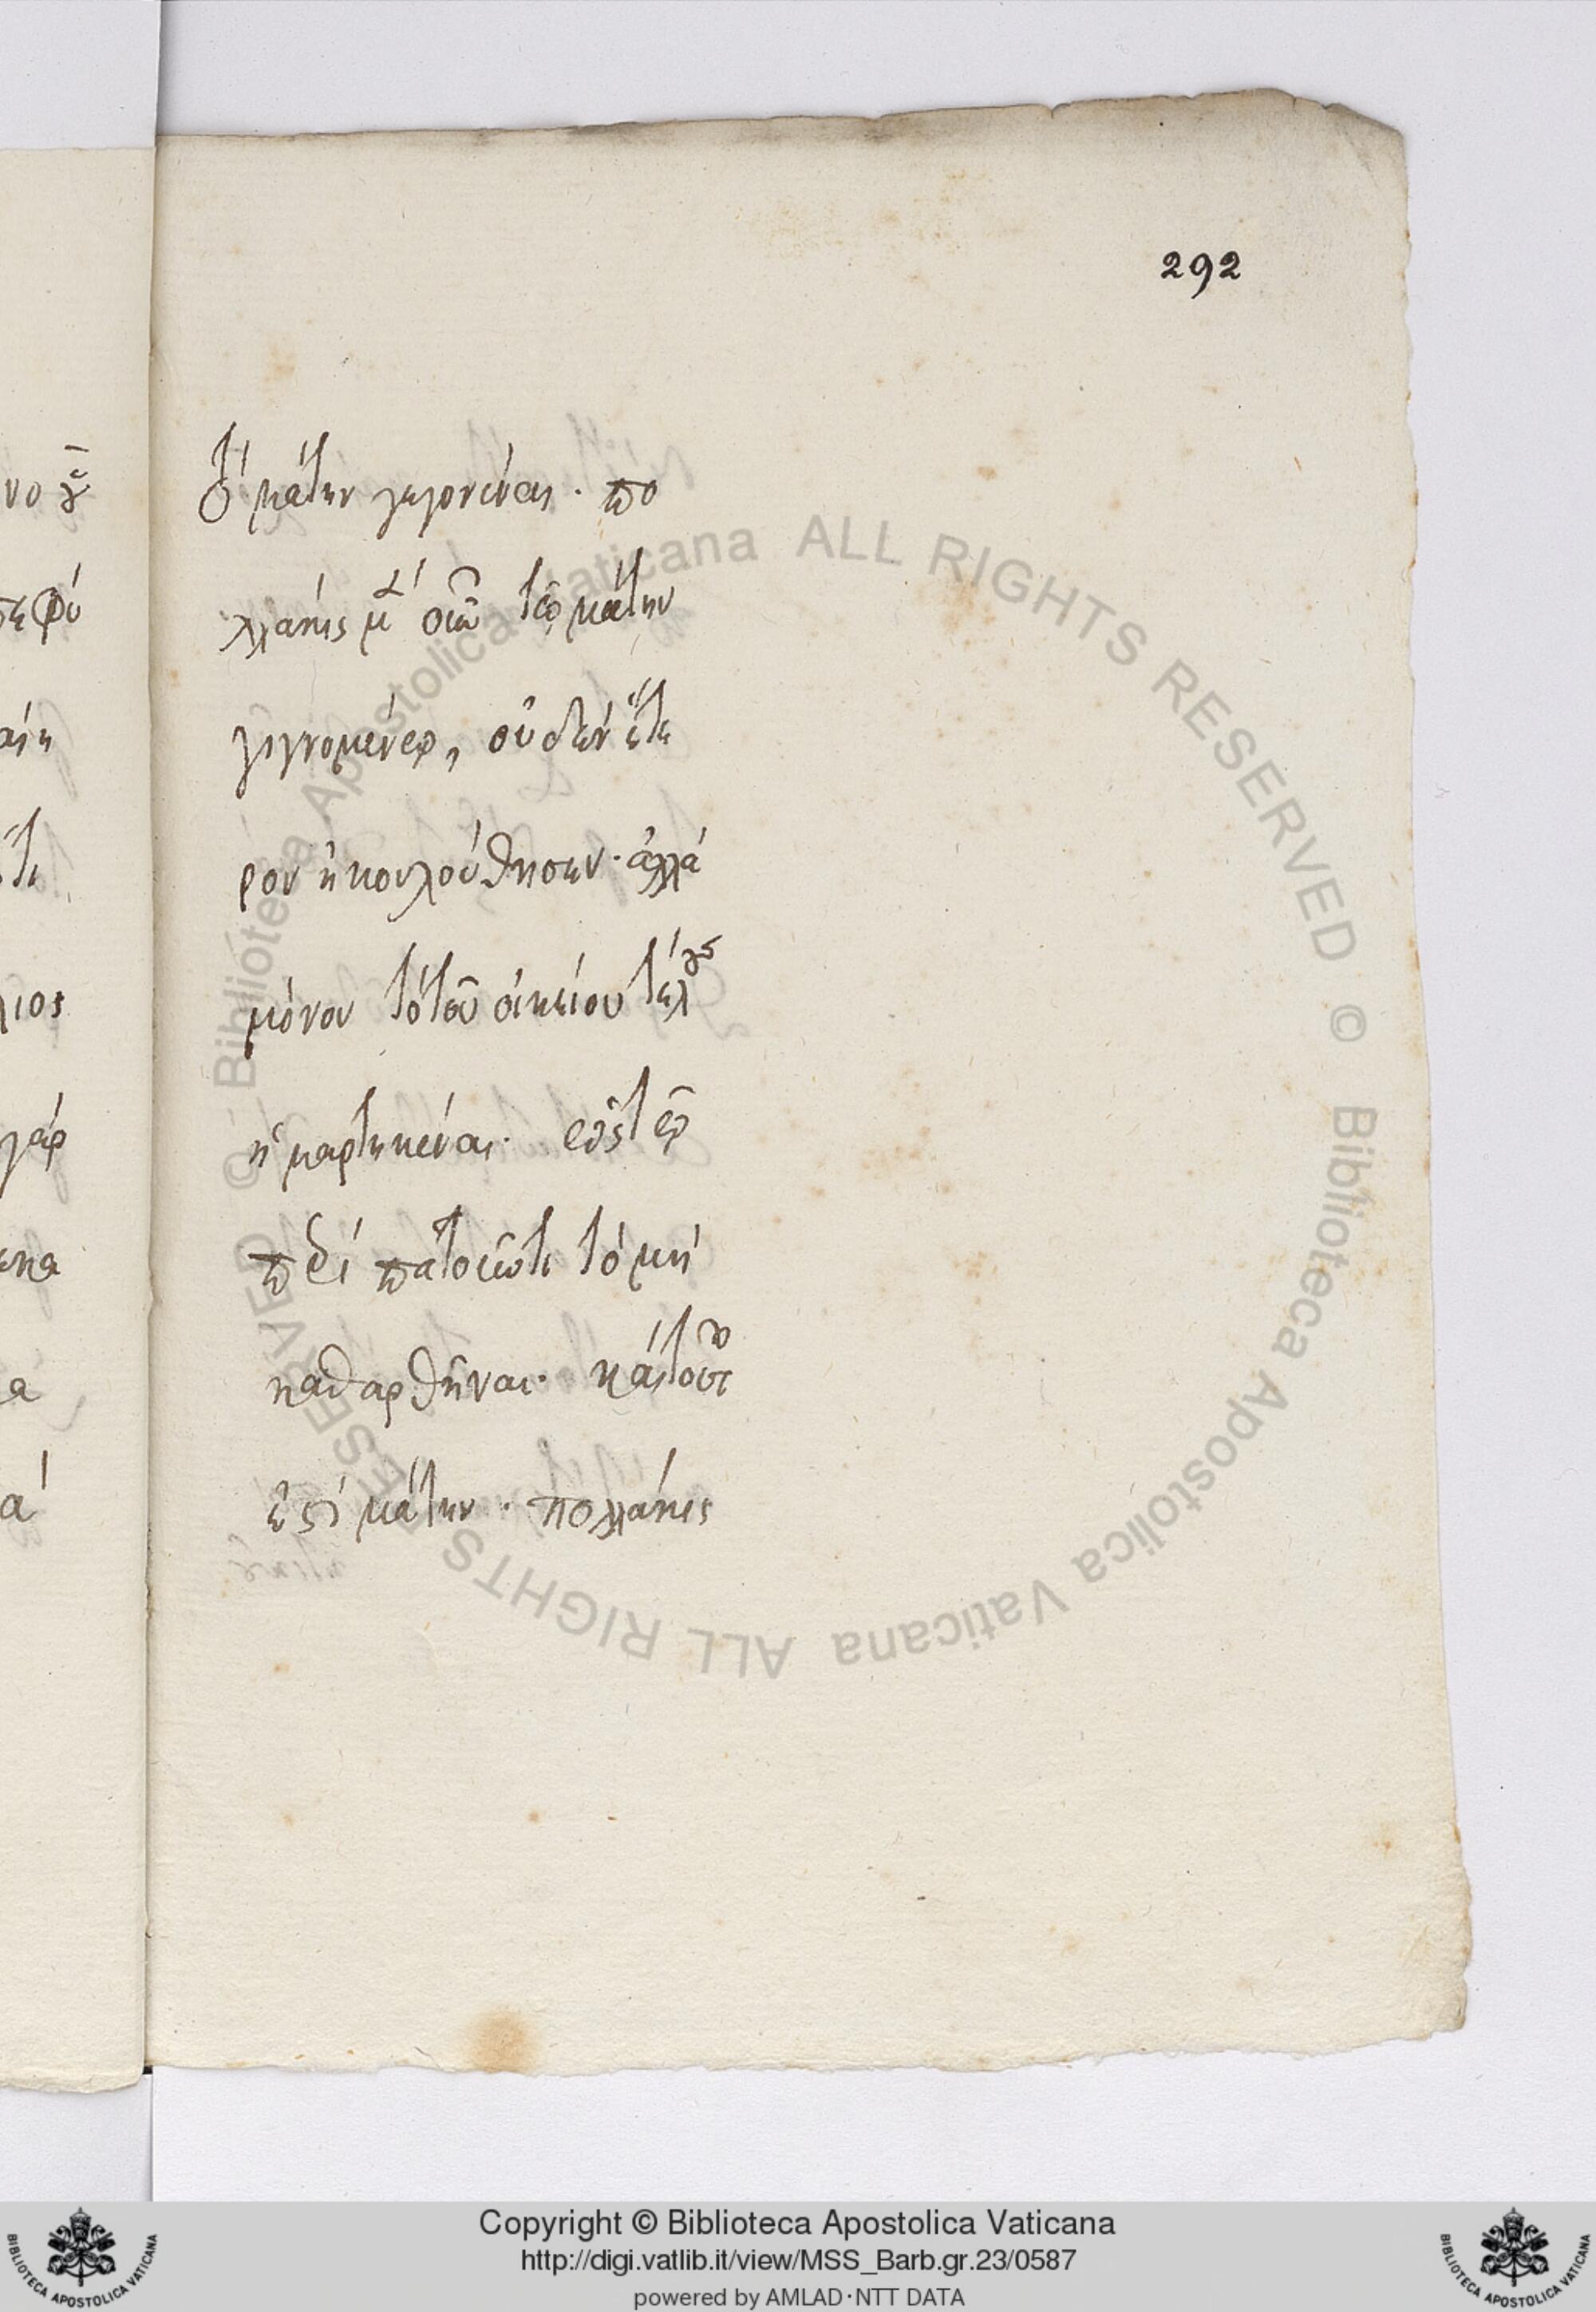 292
τὸ μάτην γεγονέναι. πο
λλάκις μ οὖν τῷ μάτην
γιγνομένῳ, οὐδὲν ἕτε
ρον ἠκολούθησεν. ἀλλὰ
μόνον τὸ τοῦ οἰκείου τέλους
ἡμαρτηκέναι. ὡς τῷ
περιπατοῦντι τὸ μὴ
καθαρθῆναι. καὶ τοῦτο
ἐστὶ μάτην. πολλάκις
© Biblioteca Apostolica Vaticana ALL RIGHTS RESERVED © Biblioteca Apostolica Vaticana ALL RIGHTS RESERVED
Copyright © Biblioteca Apostolica Vaticana
http://digi.vatlib.it/view/MSS_Barb.gr.23/0587
powered by AMLAD·NTT DATA
BIBLIOTECA APOSTOLICA VATICANA
BIBLIOTECA APOSTOLICA VATICANA